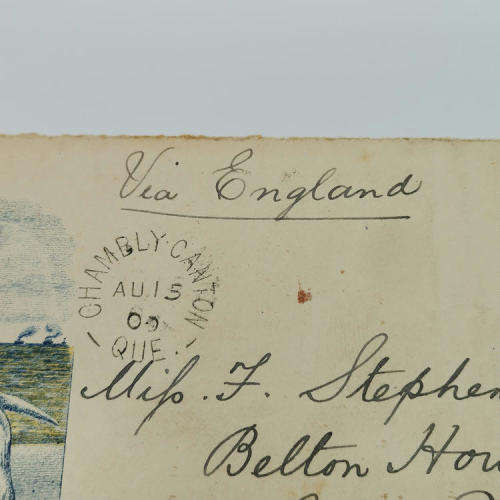 Via England
CHAMBLY CANTON
AU 15
QUE.
Miss. F. Stephen
Belton Hou